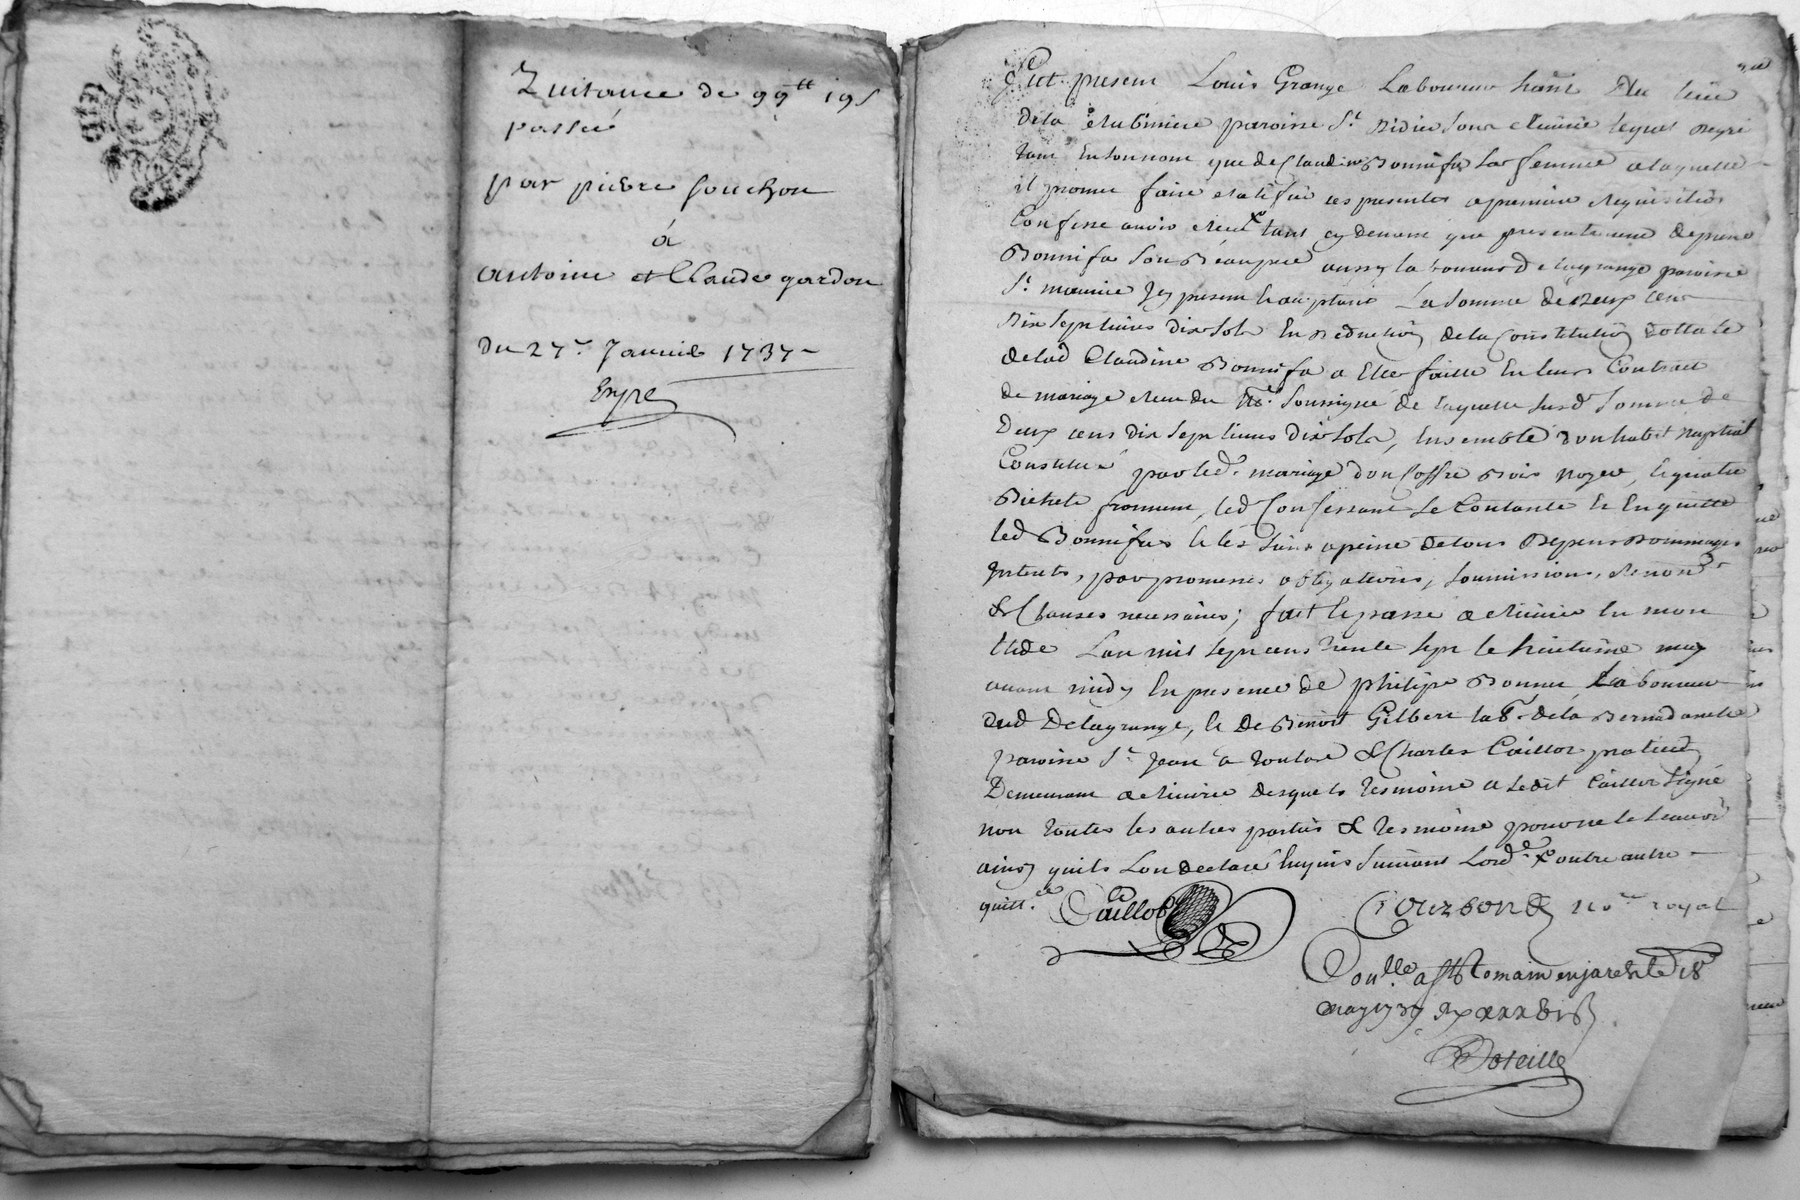 Quitance de 99tt 19s
passée
par pierre souchon
à
antoine et Claude gardon
Du 27e Janvier 1737
Expé
Fut present Louis Grange Laboureur hant du lieu
de la paroisse St Didier sous Riviric lequel
tant En son nom que de Claudine Bonnifa sa femme a laquelle
il promet faire ratifié ces presentes a premiere requisition
Confesse avoir receu tant cy devant que presentement de
Bonnifa son Beaupere aussy laboureur de lagrange paroisse
St maurice Jcy present La somme de deux cent
dix sept livres dix sols En deduction de la Constitution dottalle
de lad Claudine Bonnifa a Elle faitte En leur Contract
de mariage receu du no.re soussigné de laquelle susd somme de
Deux cens dix sept livres dix sols, Ensemble d'un habit nuptial
Constitué par led. mariage d'un Coffre Bois noyer, & quatre
Bichets froment, led Confessant se Contante & En quitte
led Bonnifa & les siens a peine de tous Depens Dommages
Interets, par promesses obligations, soumissions, renon.
& Clauses necessaires; fait & passé a Riviric En mon
Etude L'an mil sept cens trente sept le huitième may
avant midy En presence de philipe Bonnet Laboureur
dud Delagrange, & de Benoit Gilbert lab.r de la
paroisse St Jean a toulas & Charles Caillot praticien
Demeurant a Riviric desquels tesmoins a ledit Caillot signé
non toutes les autres parties & tesmoins pour ne le scavoir
ainsy quils L'on declaré Enquis suivant Lord.e outre autre
quitt.ce Caillot no.re royal
Con.lle a St Romain en jarest le 18
may 1737